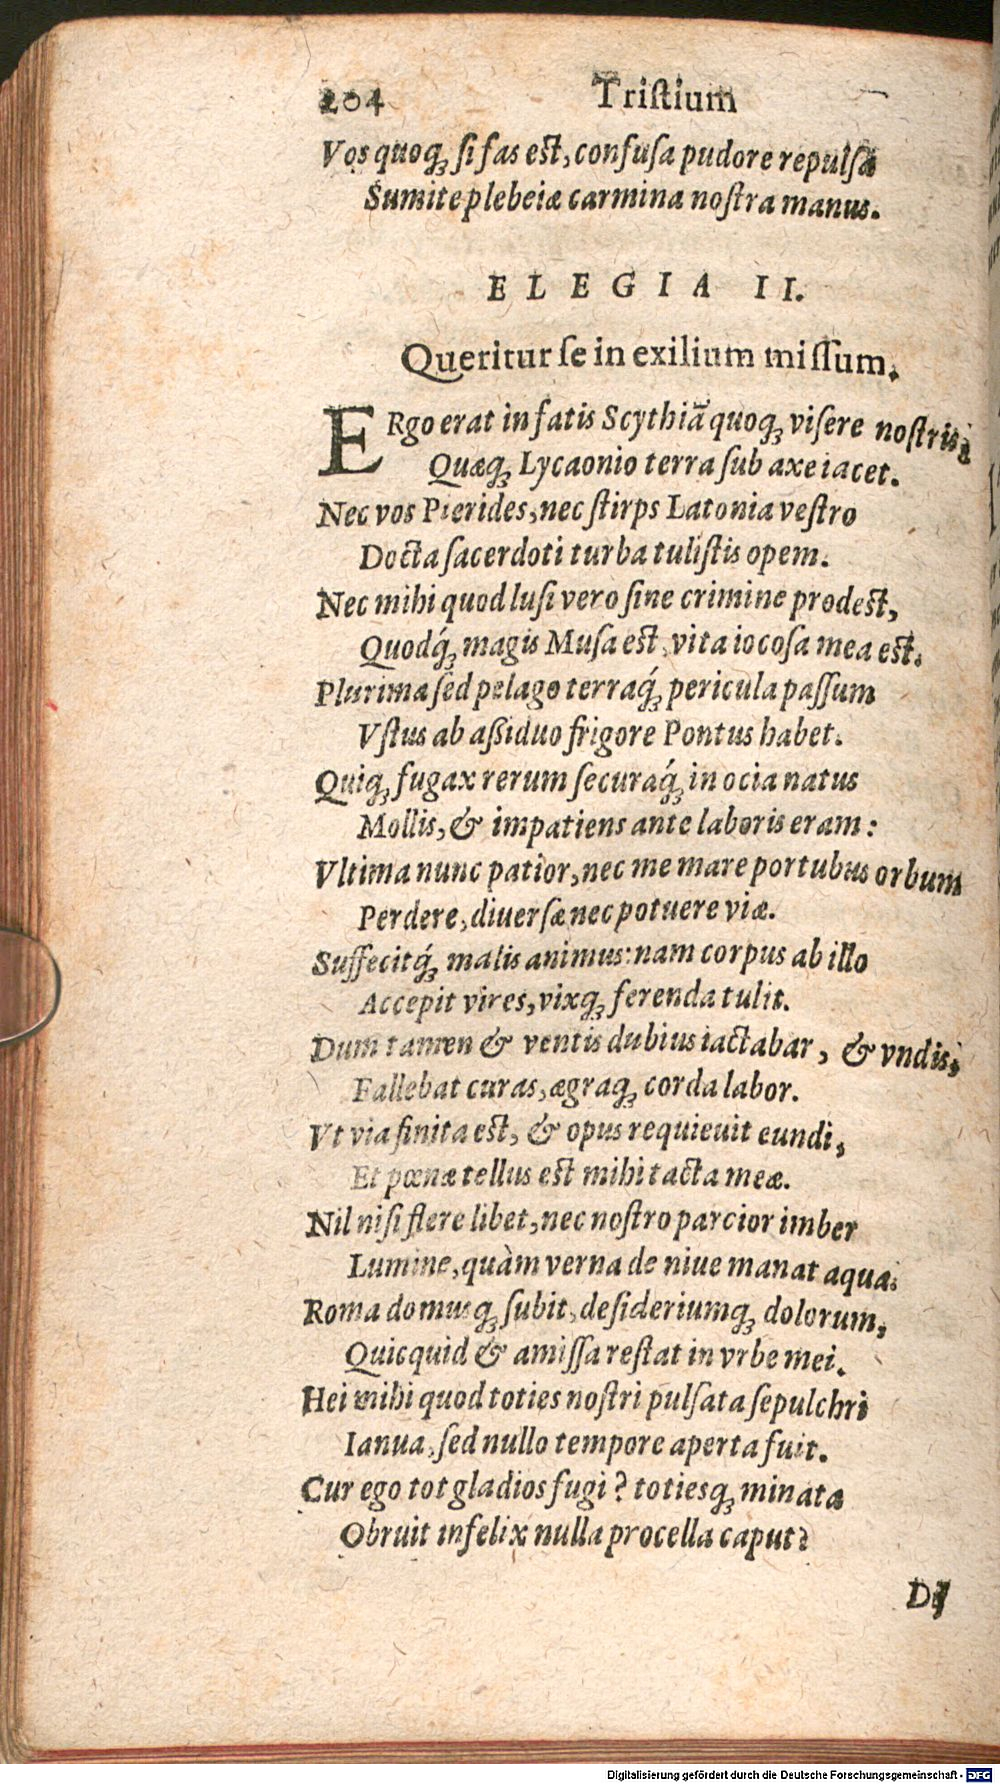 204 Triſtium
Vos quoq;, ſi fas eſt, confuſa pudore repulſæ
Sumite plebeiæ carmina noſtra manus.
ELEGIA II.
Queritur ſe in exilium miſſum.
ERgo erat in fatis Scythiā quoq; viſere noſtris,
Quæq; Lycaonio terra ſub axe iacet.
Nec vos Pierides, nec ſtirps Latonia veſtro
Docta ſacerdoti turba tuliſtis opem.
Nec mihi quod luſi vero ſine crimine prodeſt,
Quodq́; magis Muſa eſt, vita iocoſa mea eſt.
Plurima ſed pelago terraq́; pericula paſſum
Vſtus ab aßiduo frigore Pontus habet.
Quiq; fugax rerum ſecuraq́; in ocia natus
Mollis, & impatiens ante laboris eram:
Vltima nunc patior, nec me mare portubus orbum
Perdere, diuerſæ nec potuere viæ.
Suffecitq́; malis animus: nam corpus ab illo
Accepit vires, vixq; ferenda tulit.
Dum tamen & ventis dubius iactabar, & vndis,
Fallebat curas, ægraq; corda labor.
Vt via finita eſt, & opus requieuit eundi,
Et pœnæ tellus eſt mihi tacta meæ.
Nil niſi flere libet, nec noſtro parcior imber
Lumine, quàm verna de niue manat aqua.
Roma domusq; ſubit, deſideriumq; dolorum,
Quicquid & amiſſa reſtat in vrbe mei.
Hei mihi quod toties noſtri pulſata ſepulchri
Ianua, ſed nullo tempore aperta fuit.
Cur ego tot gladios fugi? totiesq; minata
Obruit infelix nulla procella caput?
Dij
Digitalisierung gefördert durch die Deutsche Forschungsgemeinschaft - DFG